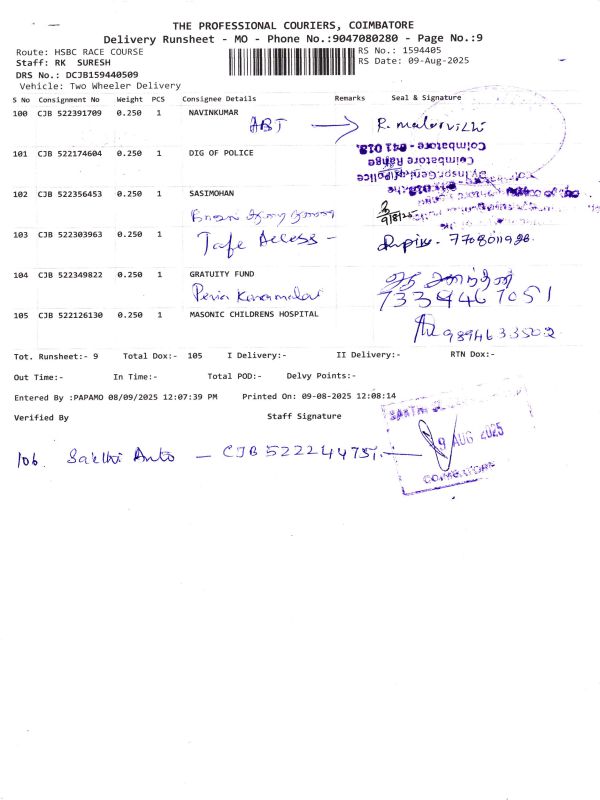 THE PROFESSIONAL COURIERS, COIMBATORE
Delivery Runsheet - MO - Phone No.:9047080280 - Page No.:9
Route: HSBC RACE COURSE
RS No.: 1594405
Staff: RK SURESH
RS Date: 09-Aug-2025
DRS No.: DCJB159440509
Vehicle: Two Wheeler Delivery
S No Consignment No Weight PCS Consignee Details Remarks Seal & Signature
100 CJB 522391709 0.250 1 NAVINKUMAR
ABT → R. malarvizhi
101 CJB 522174604 0.250 1 DIG OF POLICE
Coimbatore Range
Coimbatore - 641 018.
102 CJB 522356453 0.250 1 SASIMOHAN
9/8/25
103 CJB 522303963 0.250 1
Tafe Access -
104 CJB 522349822 0.250 1 GRATUITY FUND
7339467051
105 CJB 522126130 0.250 1 MASONIC CHILDRENS HOSPITAL
9894633502
Tot. Runsheet:- 9 Total Dox:- 105 I Delivery:- II Delivery:- RTN Dox:-
Out Time:- In Time:- Total POD:- Delvy Points:-
Entered By :PAPAMO 08/09/2025 12:07:39 PM Printed On: 09-08-2025 12:08:14
Verified By Staff Signature
9 AUG 2025
106. Sakthi Auto - CJB 522244751.
COIMBATORE